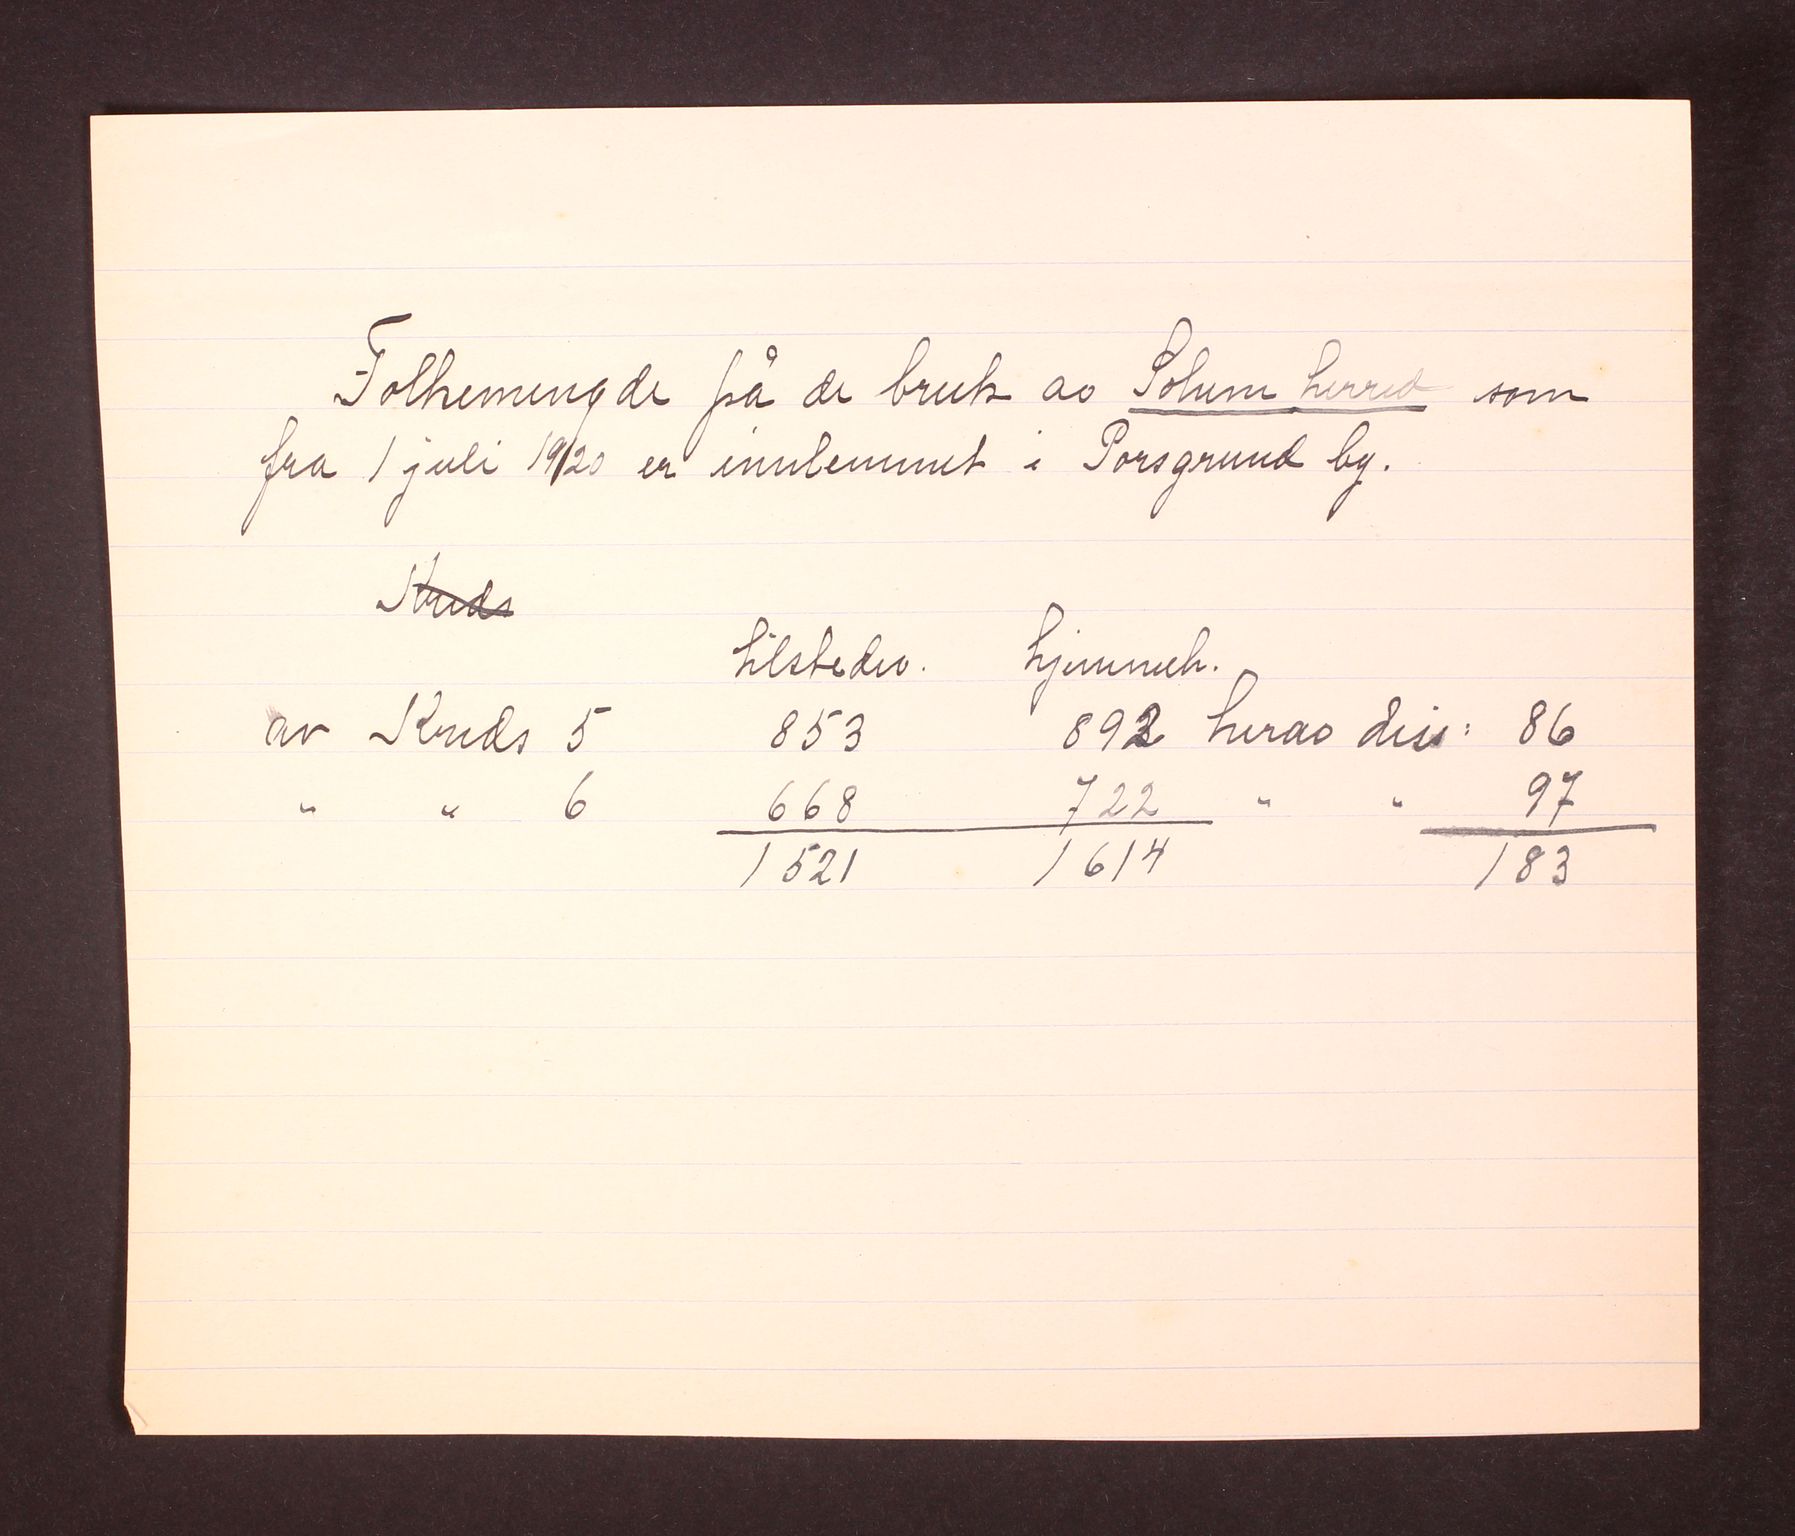 Folkemengde på de bruk av Solum herred som
fra 1 juli 1920 er innlemmet i Porsgrund by.
Kreds
tilstedev. hjemmeh.
av Kreds 5 853 892 herav dis: 86
" " 6 668 722 " " 97
1521 1614 183